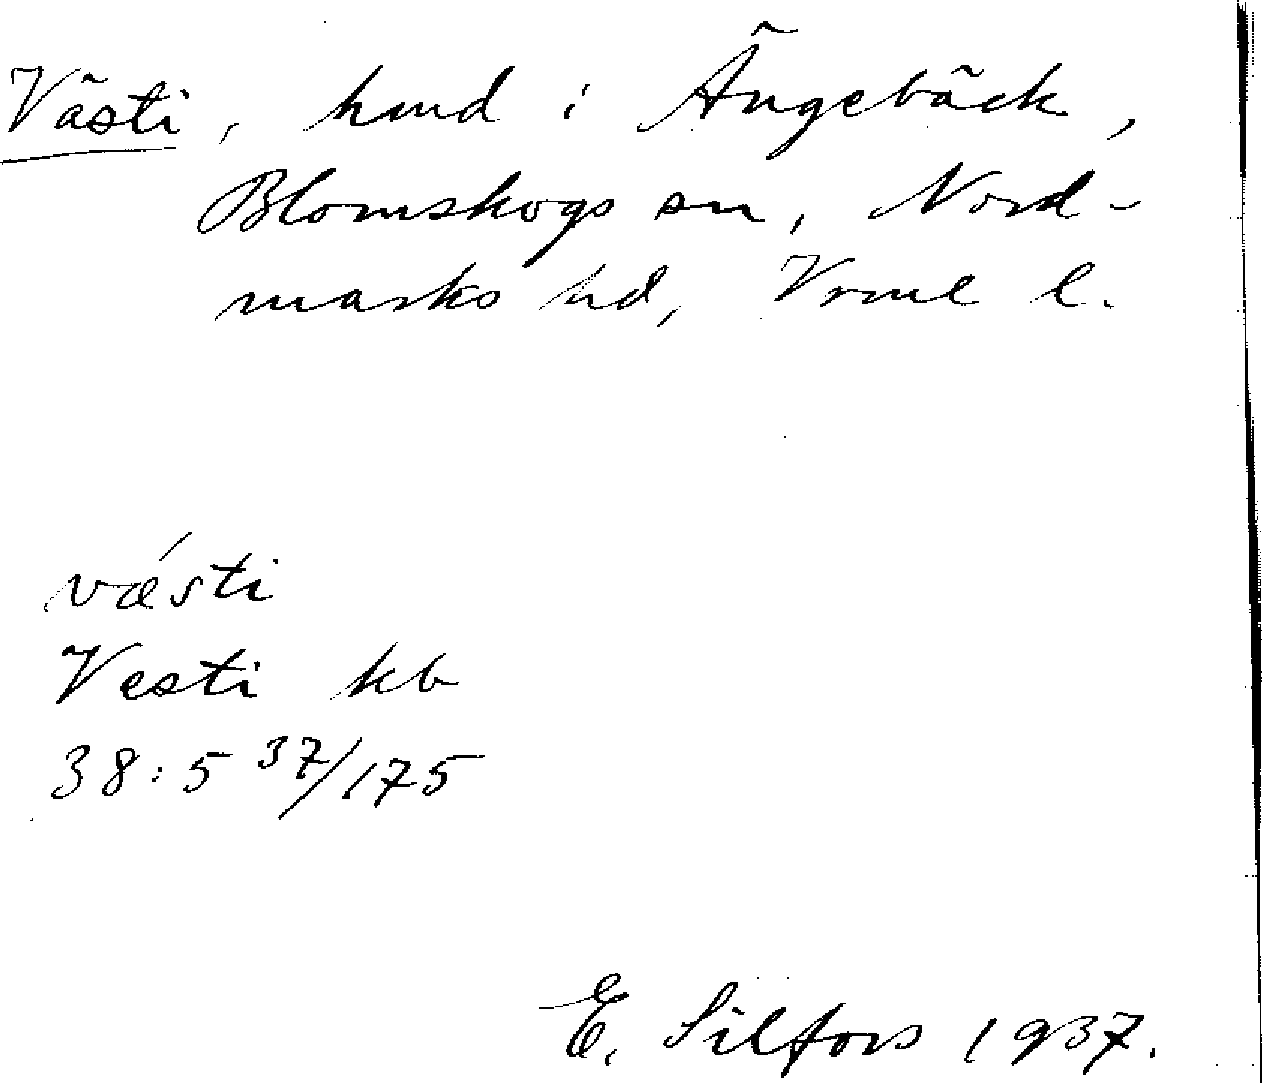 Västi, hmd i Ängebäck,
Blomskogs sn, Nord-
marks hd, Vrml l.
vǽsti
Vesti kb
38:5 37/175
E. Silfors 1937.